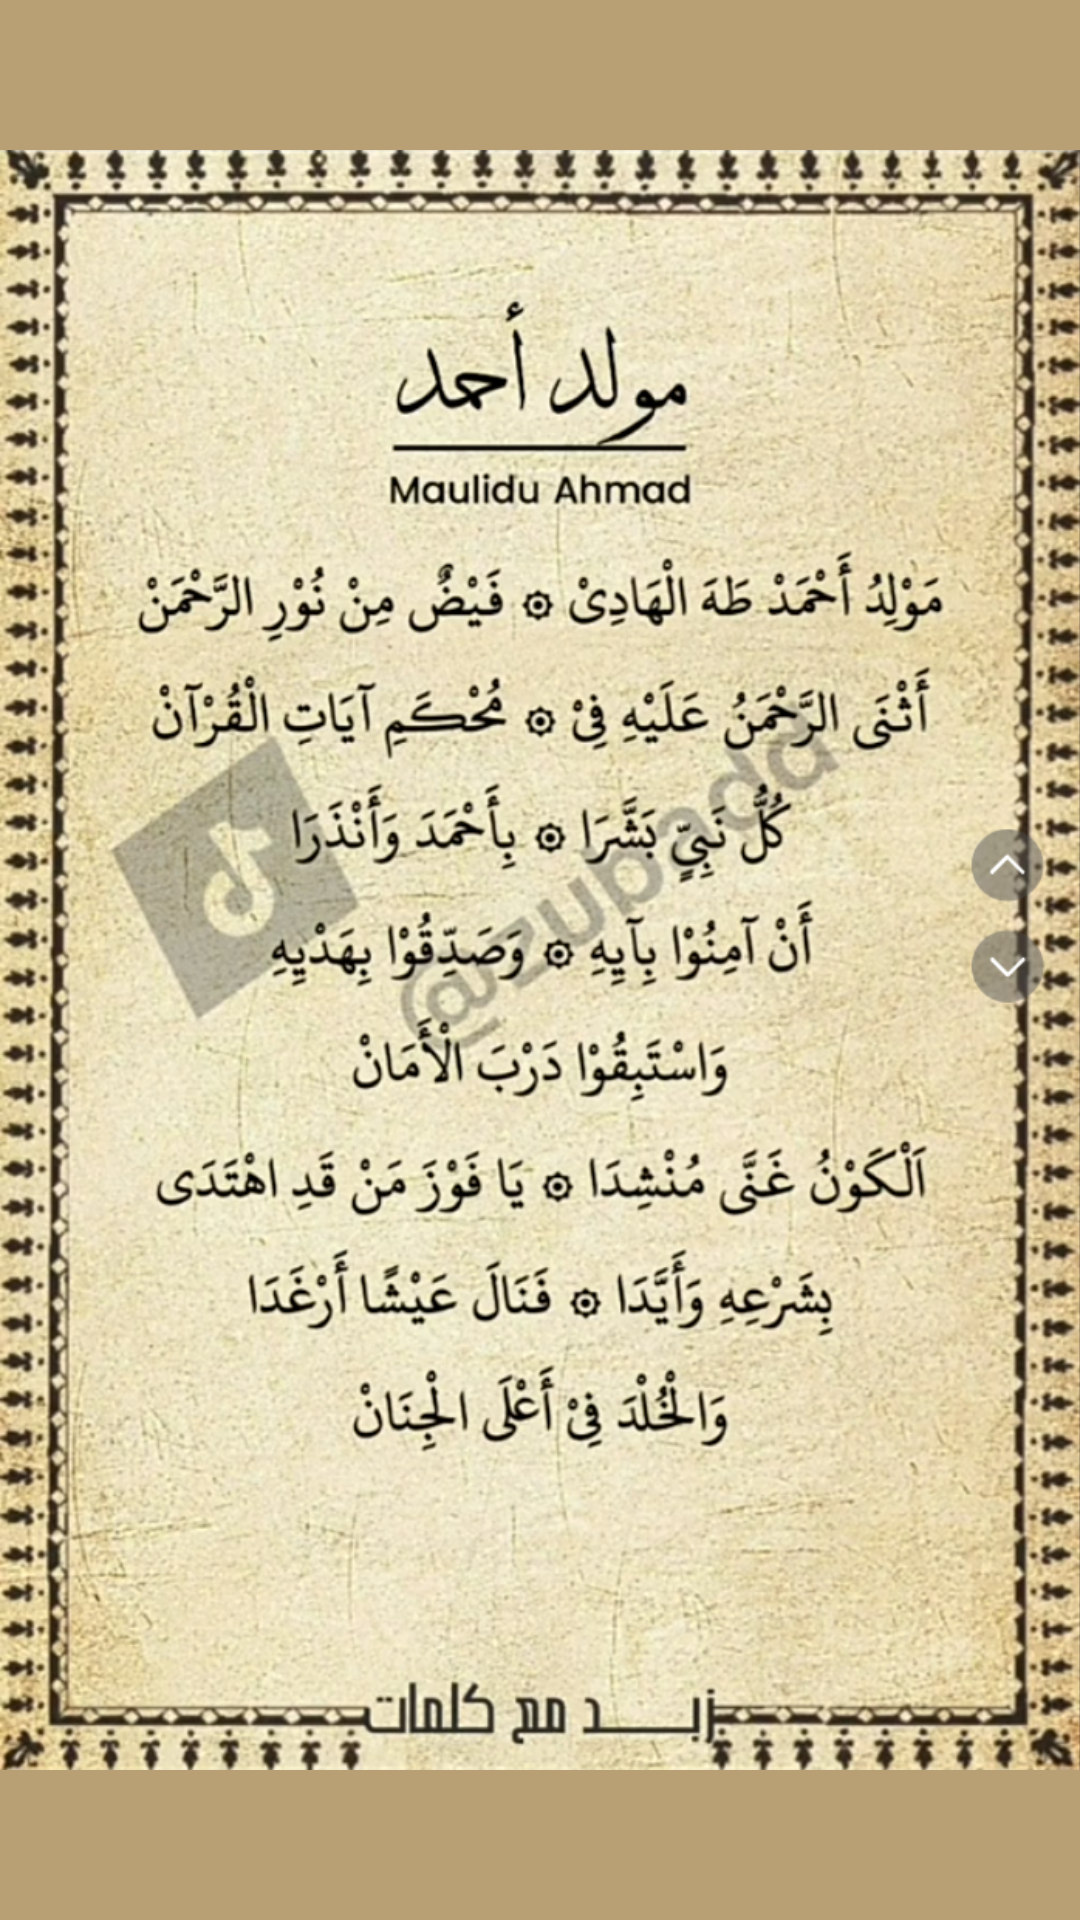 مولد أحمد
Maulidu Ahmad
مَوْلِدُ أَحْمَدْ طَهَ الْهَادِىْ ۞ فَيْضٌ مِنْ نُوْرِ الرَّحْمَنْ
أَثْنَى الرَّحْمَنُ عَلَيْهِ فِىْ ۞ مُحْكَمِ آيَاتِ الْقُرْآنْ
كُلُّ نَبِيٍّ بَشَّرَا ۞ بِأَحْمَدَ وَأَنْذَرَا
أَنْ آمِنُوْا بِآيِهِ ۞ وَصَدِّقُوْا بِهَدْيِهِ
وَاسْتَبِقُوْا دَرْبَ الْأَمَانْ
اَلْكَوْنُ غَنَّى مُنْشِدَا ۞ يَا فَوْزَ مَنْ قَدِ اهْتَدَى
بِشَرْعِهِ وَأَيَّدَا ۞ فَنَالَ عَيْشًا أَرْغَدَا
وَالْخُلْدَ فِىْ أَعْلَى الْجِنَانْ
@zubada
زبد مع كلمات